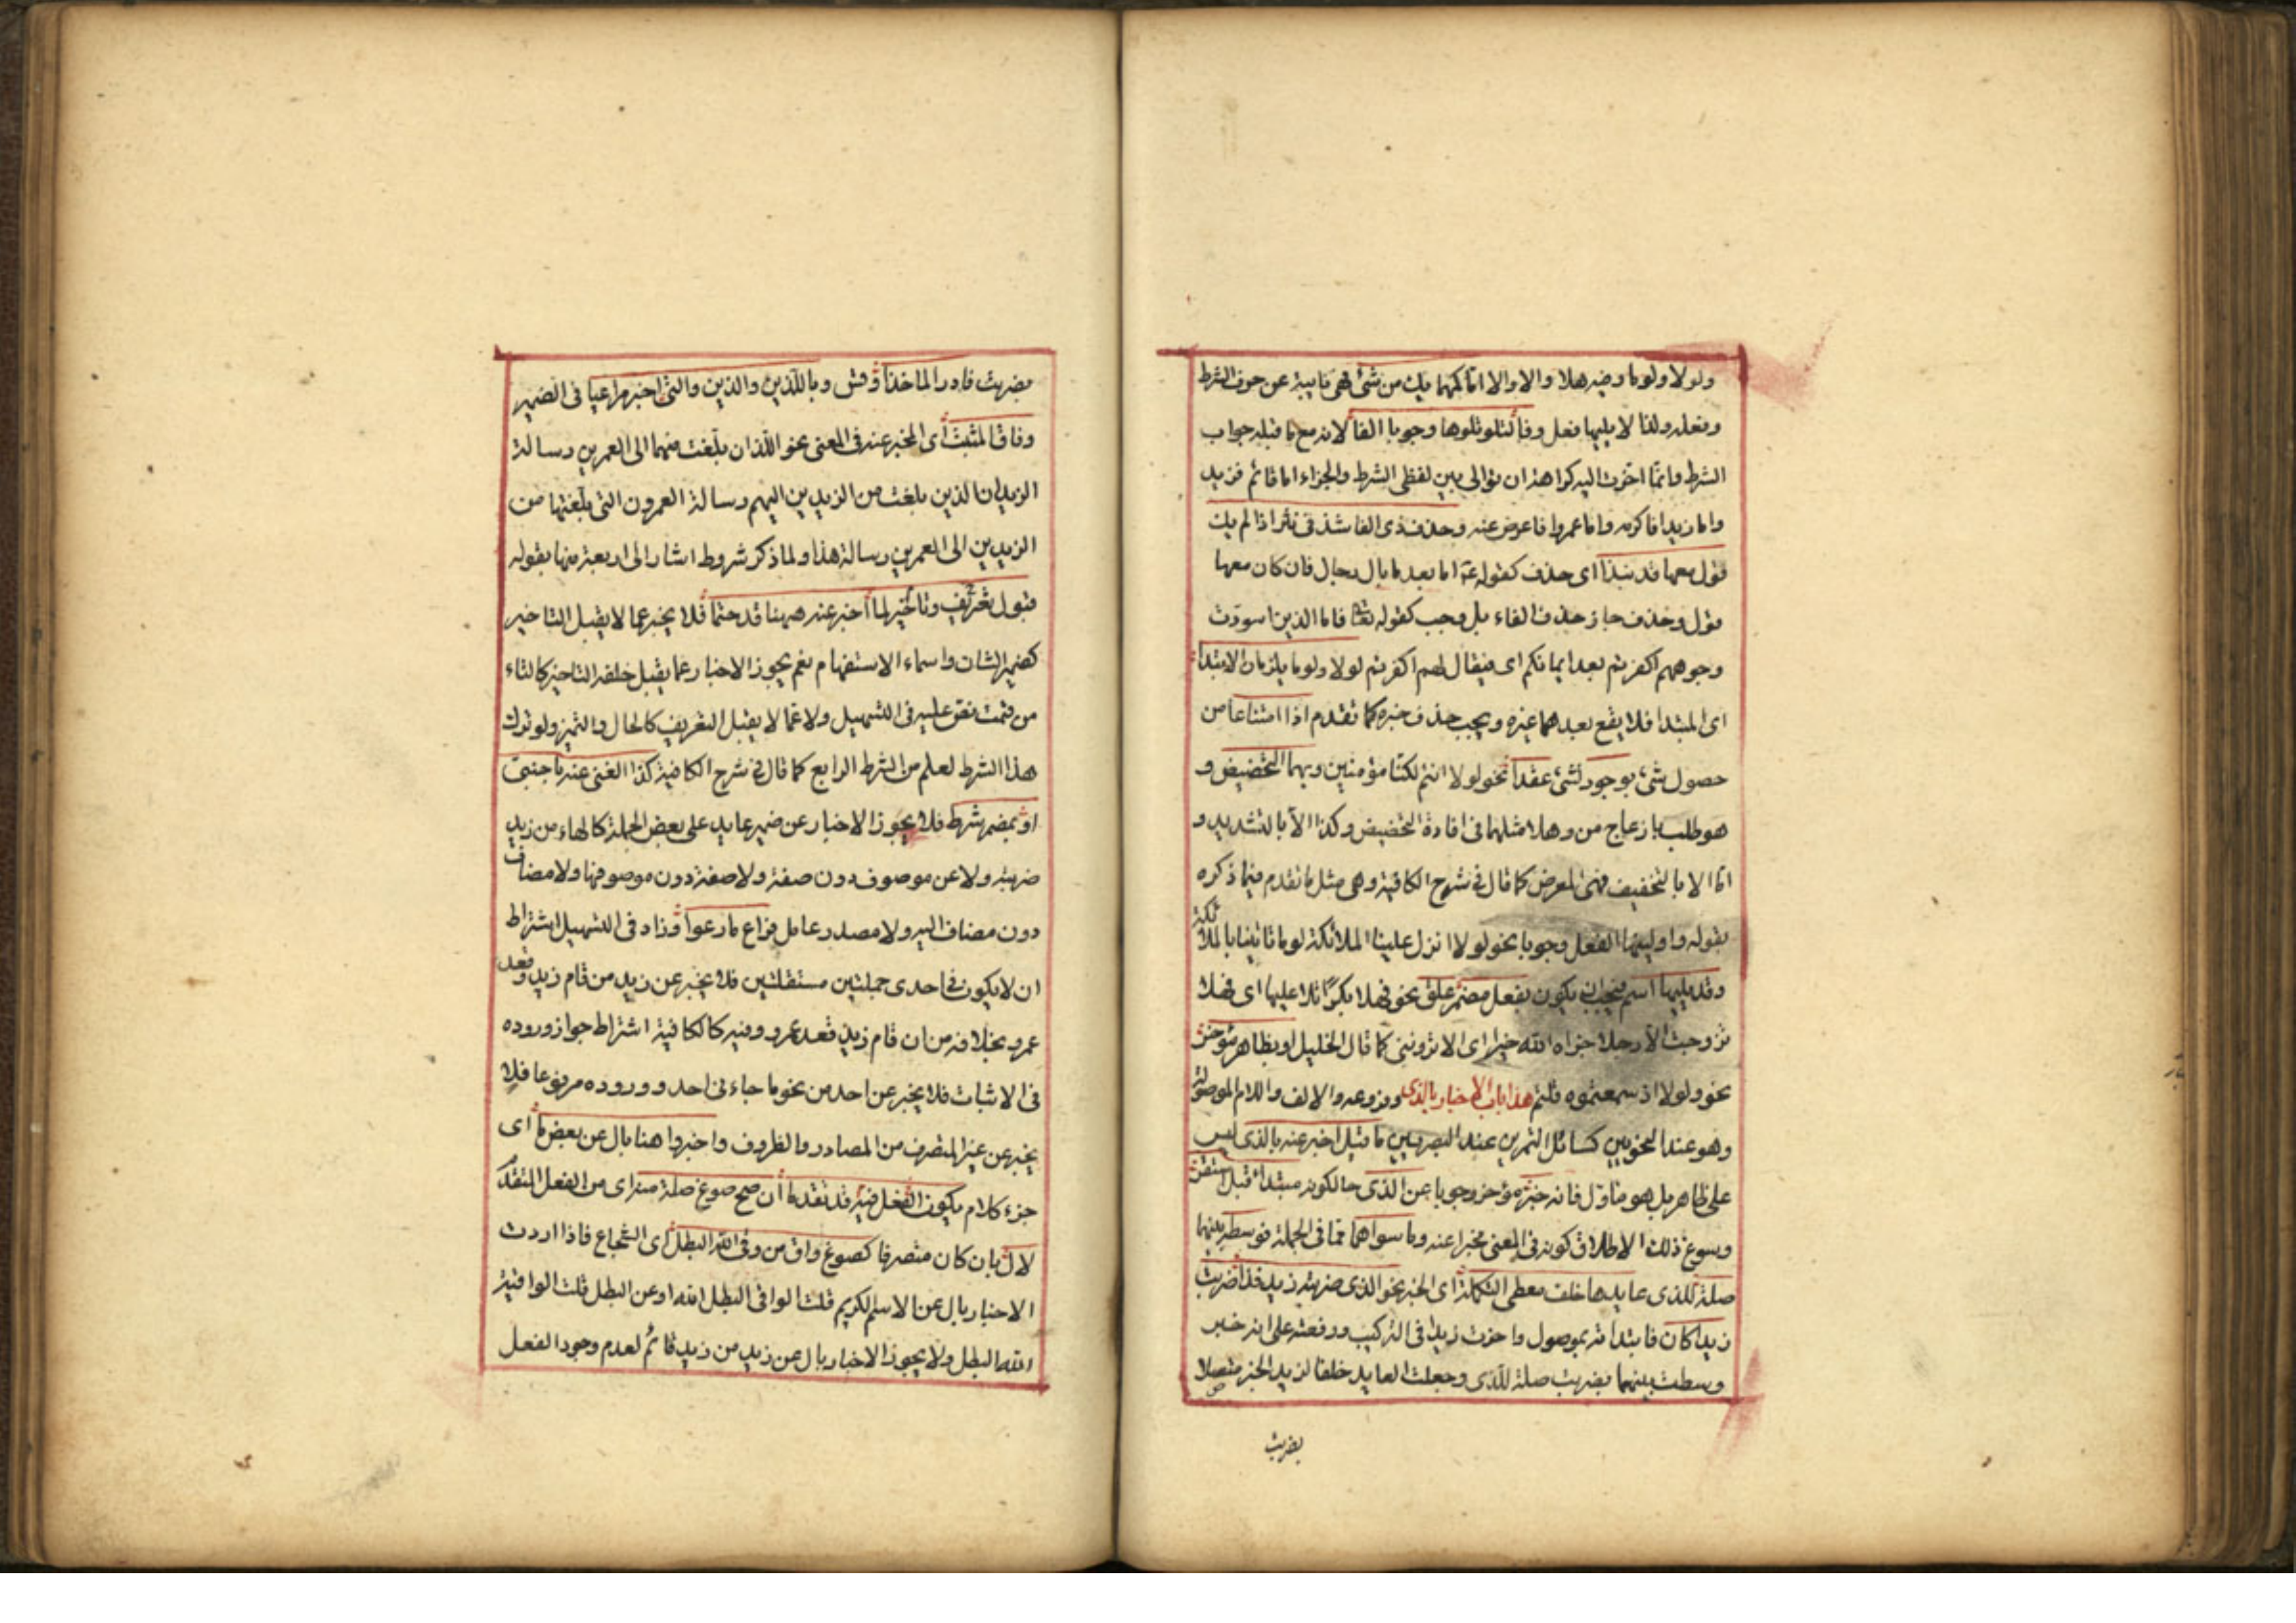 ولولا ولوما وفيه هلا والا والا اما كمهما يك من شئ فهى نايبة عن حرف الشرط
وفعله ولذا لا يليها فعل وفا لتلو تلوها وجوبا الفا لانه مع ما قبله جواب
الشرط وانما اخرت اليه كراهة ان توالى بين لفظى الشرط والجزاء اما قائم فزيد
واما زيدا فاكرم واما عمروا فاعرض عنه وحذف ذى الفا شذ فى نثر اذا لم يك
قول معها قد نبذا اى حذف كقوله اما بعد ما بال رجال فان كان معها
قول وحذف جاز حذف الفاء بل وجب كقوله تعا فاما الذين اسودت
وجوههم اكفرتم بعد ايمانكم اى فيقال لهم اكفرتم لولا ولوما يلزمان الابتدا
اى المبتدا فلا يقع بعدهما غيره ويجب حذف خبره كما تقدم اذا امتناعا من
حصول شئ بوجود لشئ عقدا نحو لولا انتم لكنا مؤمنين وبهما التحضيض و
هو طلب بازعاج من وهلا مثلهما فى افادة التحضيض وكذا الا بالتشديد و
اما الا بالتخفيف فهى للعرض كما قال فى شرح الكافية وهى مثل ما تقدم فيما ذكره
بقوله واولينها الفعل وجوبا نحو لولا انزل علينا الملائكة لوما تاتينا بالملائكة
وقد يليها اسم فيجب ان يكون بفعل مضمر علق نحو فهلا بكرا تلاعبها اى فهلا
تزوجت الا رجلا جزاه الله خيرا اى الا تروننى كما قال الخليل او بظاهر مؤخر
نحو ولولا اذ سمعتموه قلتم هذا باب الاخبار بالذى وفروعه والالف واللام الموصولة
وهو عند النحويين كمسائل التمرين عند الصرفيين ما قيل اخبر عنه بالذى ليس
على ظاهره بل هو مأول فانه خبر مؤخر وجوبا عن الذى حالكونه مبتدا قبل استقر
وسوغ ذلك الاطلاق كونه فى المعنى مخبرا عنه وما سواهما مما فى الجملة فوسطه بينهما
صلة للذى عايدها خلف معطى التكملة اى الخبر نحو الذى ضربته زيد فذا ضربت
زيدا كان فابتدأته بموصول واخرت زيدا فى التركيب ورفعته على انه خبر
وسطت بينهما بضربت صلة للذى وجعلت العايد خلفا لزيد الخبر متصلا
بضربت
بضربت فادر الماخذا وقش وباللذين والذين والتى اخبر مراعيا فى الضمير
وفاق المثبت اى المخبر عنه فى المعنى نحو اللذان بلغت منهما الى العمرين رسالة
الزيدان الذين بلغت من الزيدين اليهم رسالة العمرون التى بلغتها من
الزيدين الى العمرين رسالة هذا ولما ذكر شروط اشار الى اربعة منها بقوله
قبول تعريف وتاخير لما اخبر عنه ههنا قد حتما فلا يخبر عما لا يقبل التاخير
كضمير الشان واسماء الاستفهام نعم يجوز الاخبار عما يقبل خلفه التاخير كالتاء
من قمت نص عليه فى التسهيل ولا عما لا يقبل التعريف كالحال والتميز ولو ترك
هذا الشرط لعلم من الشرط الرابع كما قال فى شرح الكافية كذا الغنى عنه باجنبى
او بمضمر شرط فلا يجوز الاخبار عن ضمير عايد على بعض الجملة كالهاء من زيد
ضربته ولا عن موصوف دون صفة ولا صفة دون موصوفها ولا مضاف
دون مضاف اليه ولا مصدر عامل فراع ما رعوا وزاد فى التسهيل اشتراط
ان لا يكون فى احدى جملتين مستقلتين فلا يخبر عن زيد من قام زيد وقعد
عمرو بخلافه من ان قام زيد قعد عمرو وفيه كالكافية اشتراط جواز وروده
فى الاثبات فلا يخبر عن احد من نحو ما جاءنى احد ووروده مرفوعا فلا
يخبر عن غير المتصرف من المصادر والظروف واخبروا هنا بال عن بعض ما اى
جزء كلام يكون الفعل فيه قد تقدما ان صح صوغ صلة منه اى من الفعل المتقدم
لال بان كان متصرفا كصوغ واق من وقى الله البطل اى الشجاع فاذا اردت
الاخبار بال عن الاسم الكريم قلت الواقى البطل الله او عن البطل قلت الواقيه
الله البطل ولا يجوز الاخبار بال عن زيد من زيد قائم لعدم وجود الفعل